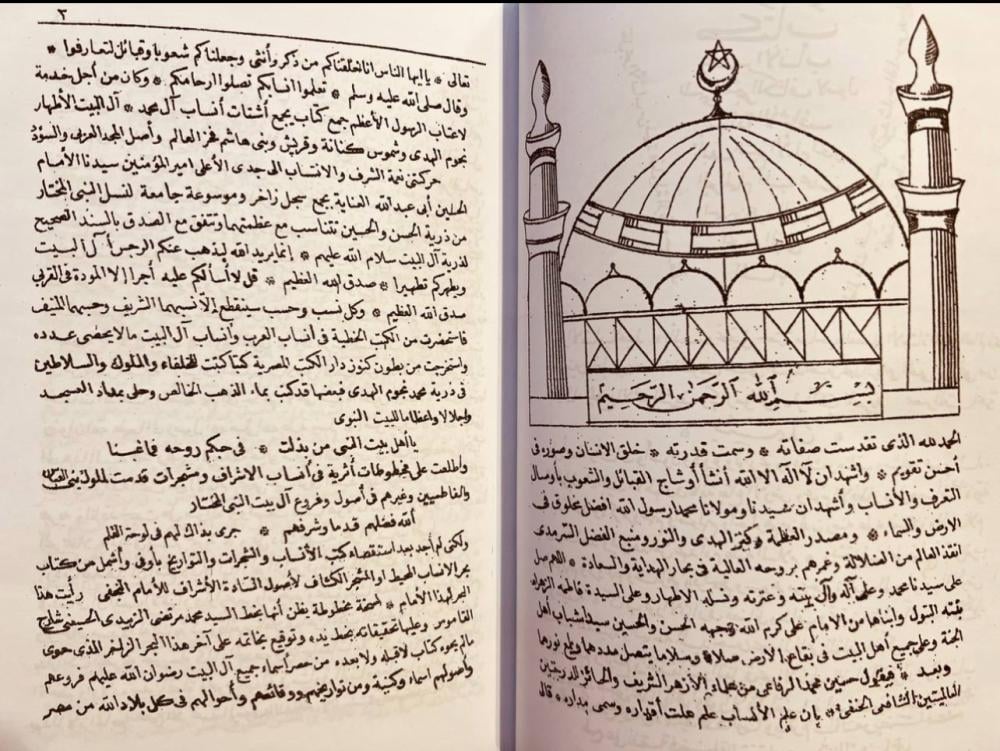 بسم الله الرحمن الرحيم
الحمد لله الذى تقدست صفاته * وسمت قدرته * خلق الانسان وصوره فى
أحسن تقويم * واشهد ان لا اله الا الله أنشأ أوشاج القبائل والشعوب بأوصال
الشرف والأنساب * وأشهد ان سيدنا ومولانا محمدا رسول الله افضل مخلوق فى
الارض والسماء * ومصدر العظمة وكنز الهدى والنور ومنبع الفضل السرمدى
انقذ العالم من الضلالة وغمرهم بروحه العالية فى بحار الهداية والسعادة * اللهم صل
على سيدنا محمد وعلى آله وآل بيته وعترته ونسله الاطهار وعلى السيدة فاطمة الزهراء
بنته البتول وابناها من الامام على كرم الله وجهه الحسن والحسين سيدا شباب أهل
الجنة وعلى جميع أهل البيت فى بقاع الارض صلاة وسلاما يتصل مددها ويعم نورها
وبعد * فيقول حسين محمد الرفاعى من علماء الأزهر الشريف والحائز للدرجتين
العالميتين الشافعى الحنفى * بان علم الأنساب علم علت أقداره وسمى مداره * قال
٣
تعالى * يا ايها الناس انا خلقناكم من ذكر وأنثى وجعلناكم شعوبا وقبائل لتعارفوا *
وقال صلى الله عليه وسلم * تعلموا انسابكم تصلوا ارحامكم * وكان من أجل خدمة
لاعتاب الرسول الأعظم جمع كتاب يجمع أشتات أنساب آل محمد * آل البيت الأطهار
نجوم الهدى وشموس كنانة وقريش وبنى هاشم فخر العالم وأصل المجد العربى والسؤدد
حركتنى نعمة الشرف والانتساب الى جدى الأعلى امير المؤمنين سيدنا الأمام
الحسين أبى عبد الله العناية بجمع سجل زاخر وموسوعة جامعة لنسل النبى المختار
من ذرية الحسن والحسين تتناسب مع عظمتهما وتتفق مع الصدق بالسند الصحيح
لذرية آل البيت سلام الله عليهم * إنما يريد الله ليذهب عنكم الرجس أهل البيت
ويطهركم تطهيرا * صدق الله العظيم * قل لا أسألكم عليه أجرا إلا المودة فى القربى
صدق الله العظيم * وكل نسب وحسب سينقطع إلا نسبهما الشريف وحسبهما المنيف
فاستحضرت من الكتب الخطية فى أنساب العرب وأنساب آل البيت مالا يحصى عدده
واستخرجت من بطون كنوز دار الكتب المصرية كتبا كتبت للخلفاء والملوك والسلاطين
فى ذرية محمد نجوم الهدى فبعضها قد كتب بماء الذهب الخالص وحلى بمداد العسجد
إجلالا واعظاما للبيت النبوى
يا أهل بيت النبى من بذلت * فى حبكم روحه فما غبنا
وأطلعت على مخطوطات أثرية فى أنساب الاشراف ومشجرات قدمت للملوك بنى
والفاطميين وغيرهم فى أصول وفروع آل بيت النبى المختار
ألله فضلهم قدما وشرفهم * جرى بذاك لهم فى لوحة القلم
ولكنى لم أجد بعد استقصاء كتب الأنساب والشجرات والتواريخ بأوفى وأشمل من كتاب
بحر الانساب المحيط او المشجر الكشاف لأصول السادة الأشراف للأمام النجفى رأيت هذا
البحر لهذا الأمام * نسخة مخطوطة يظن أنها بخط السيد محمد مرتضى الزبيدى الحسينى شارح
القاموس وعليها تحقيقاته بخط يده وتوقيع بخاتمه على آخر هذا البحر الزاخر الذى حوى
مالم يحوه كتاب لا قبله ولا بعده من حصر أسماء جميع آل البيت رضوان الله عليهم فروعهم
وأصولهم اسماء وكنية ومن تواريخهم ووقائعهم وأحوالهم فى كل بلاد الله من مصر